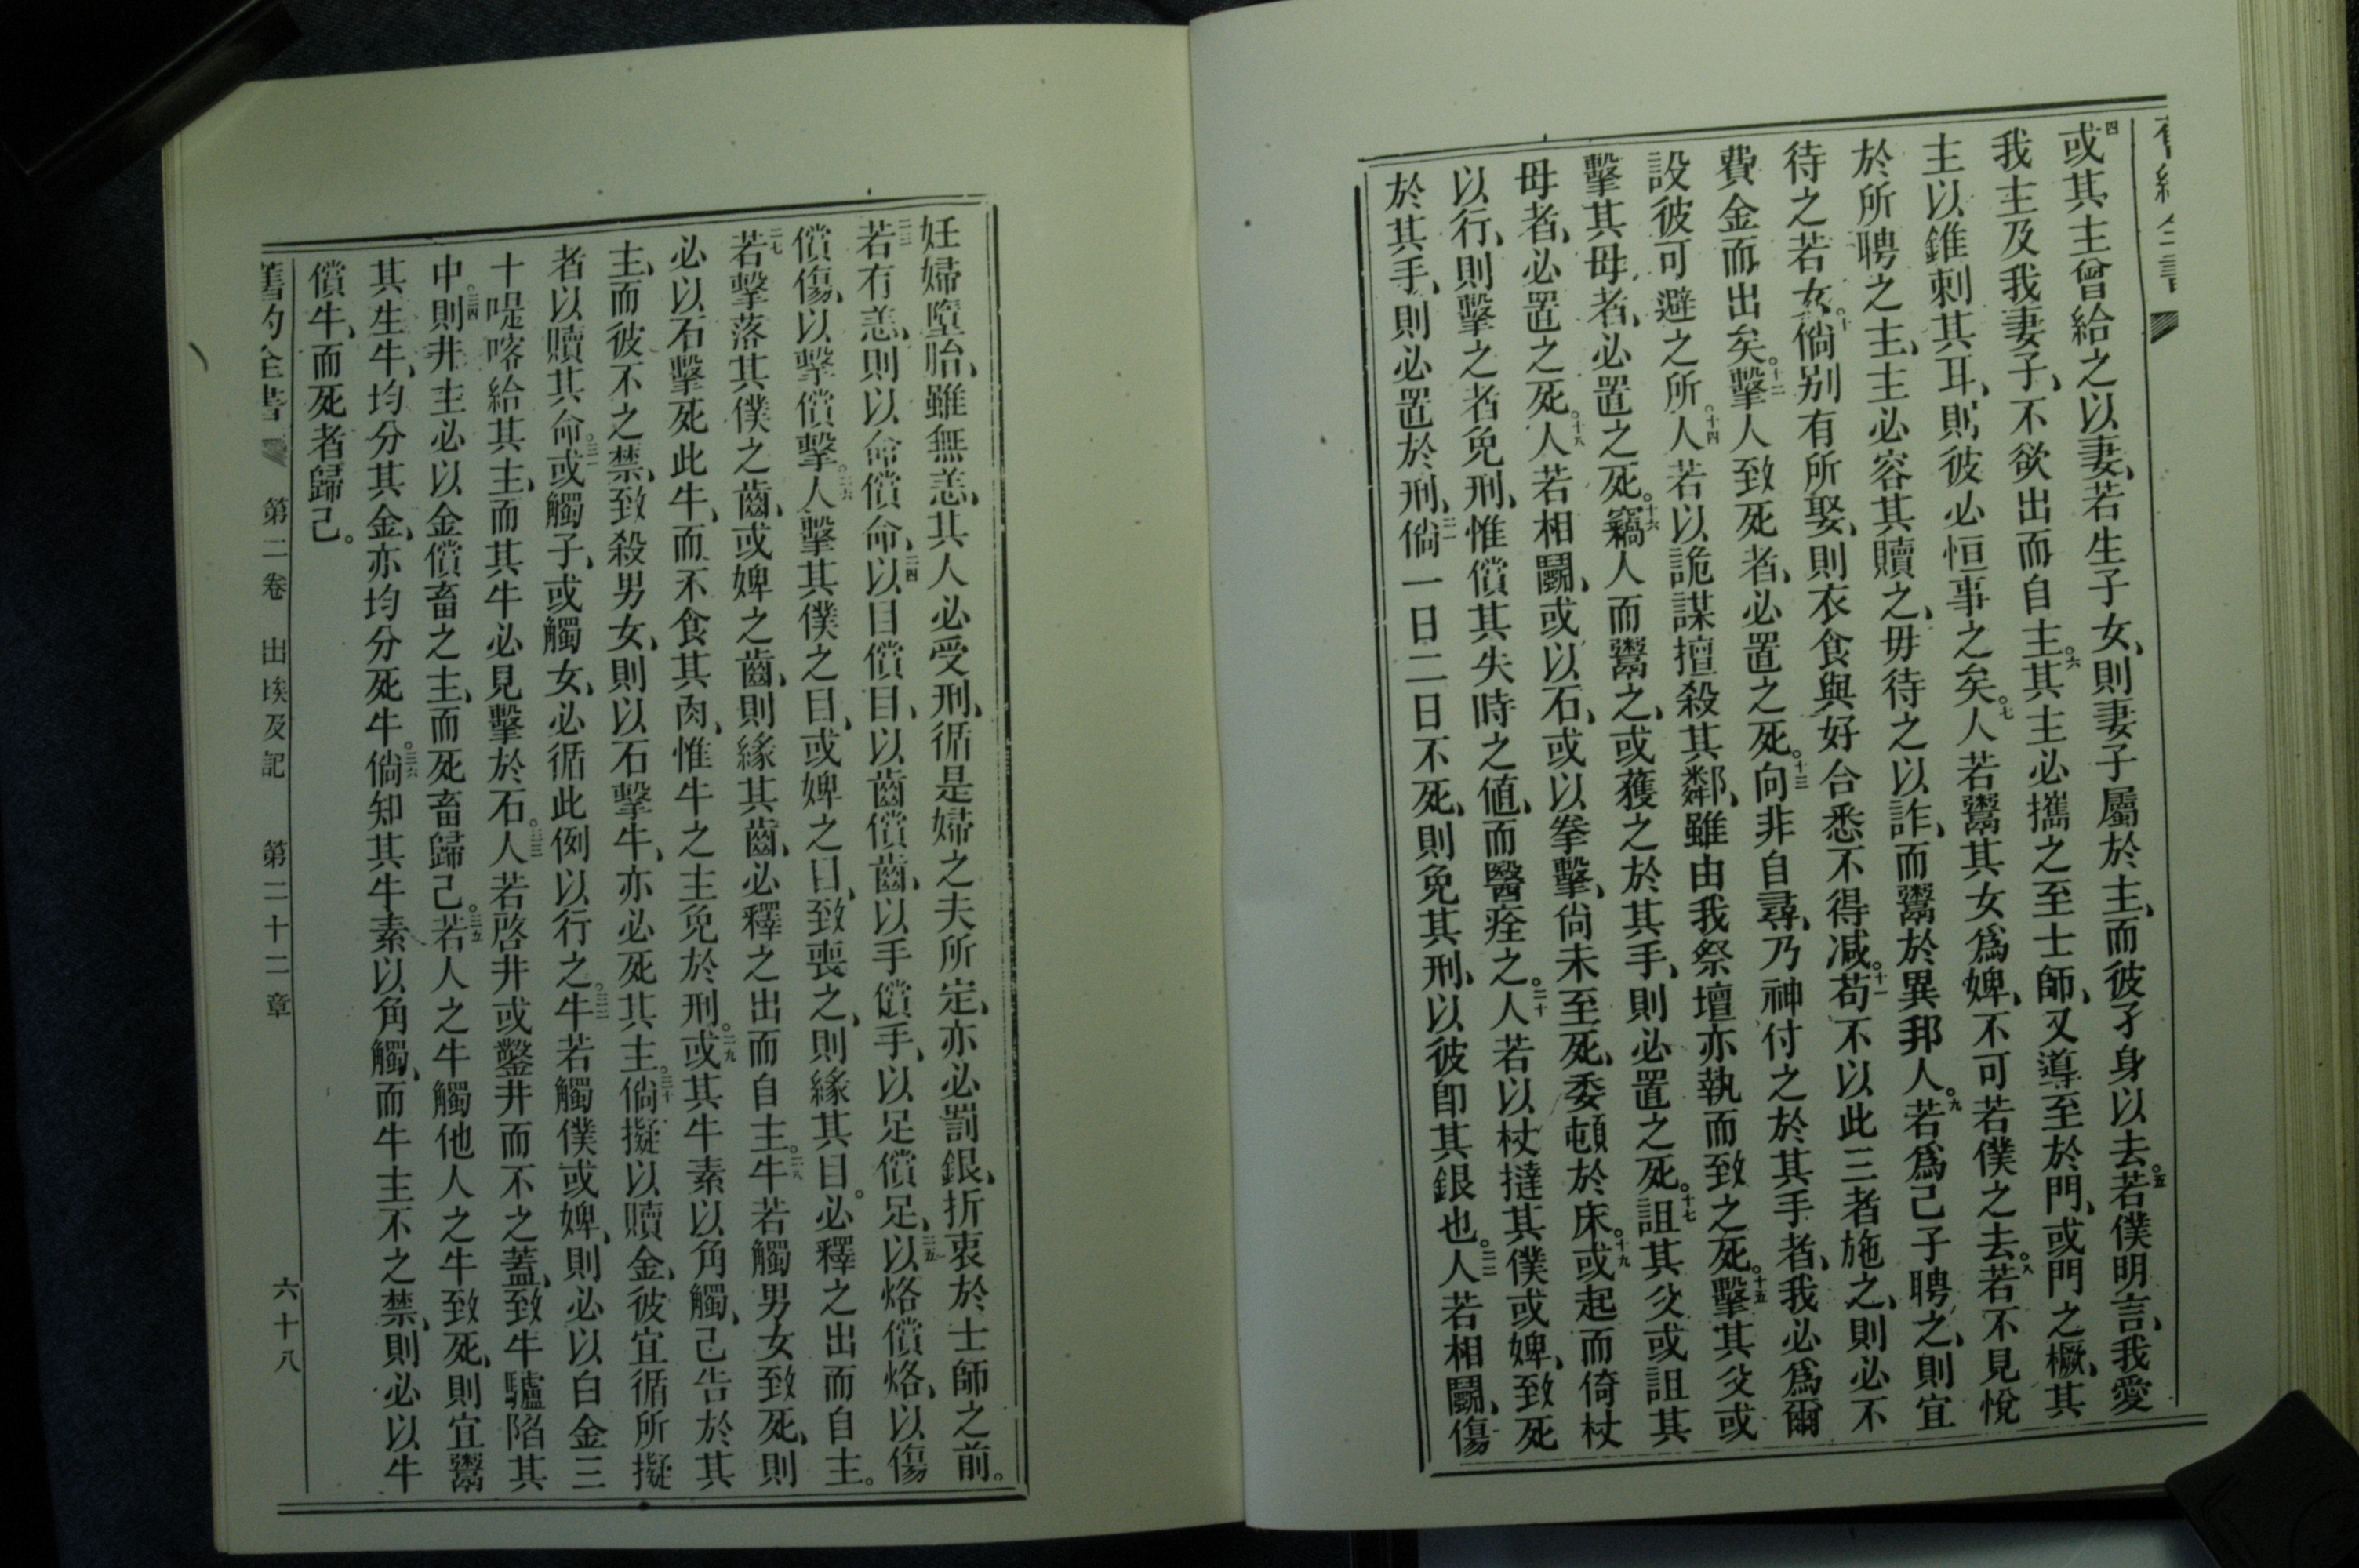 四或其主曾給之以妻、若生子女、則妻子屬於主、而彼孑身以去。五若僕明言、我愛
我主及我妻子、不欲出而自主。六其主必攜之至士師、又導至於門、或門之橛、其
主以錐刺其耳、則彼必恒事之矣。七人若鬻其女爲婢、不可若僕之去。八若不見悅
於所聘之主、主必容其贖之、毋待之以詐、而鬻於異邦人。九若爲己子聘之、則宜
待之若女。十倘别有所娶、則衣食與好合悉不得减。十一苟不以此三者施之、則必不
費金而出矣。十二擊人致死者、必置之死。十三向非自尋、乃神付之於其手者、我必爲爾
設彼可避之所。十四人若以詭謀擅殺其鄰、雖由我祭壇亦執而致之死。十五擊其父或
擊其母者、必置之死。十六竊人而鬻之、或獲之於其手、則必置之死。十七詛其父或詛其
母者、必置之死。十八人若相鬬、或以石、或以拳擊、尙未至死、委頓於床。十九或起而倚杖
以行、則擊之者免刑、惟償其失時之値、而醫痊之。二十人若以杖撻其僕或婢、致死
於其手、則必置於刑、二一倘一日二日不死、則免其刑、以彼卽其銀也。二二人若相鬬、傷
妊婦墮胎、雖無恙、其人必受刑、循是婦之夫所定、亦必罰銀、折衷於士師之前。
二三若有恙、則以命償命、二四以目償目、以齒償齒、以手償手、以足償足、二五以烙償烙、以傷
償傷、以擊償擊。二六人擊其僕之目、或婢之目、致喪之、則緣其目。必釋之出而自主。
二七若擊落其僕之齒、或婢之齒、則緣其齒、必釋之出而自主。二八牛若觸男女致死、則
必以石擊死此牛、而不食其肉、惟牛之主免於刑。二九或其牛素以角觸、己告於其
主、而彼不之禁、致殺男女、則以石擊牛、亦必死其主。三十倘擬以贖金、彼宜循所擬
者以贖其命。三一或觸子、或觸女、必循此例以行之。三二牛若觸僕或婢、則必以白金三
十㖷喀給其主、而其牛必見擊於石。三三人若啓井或鑿井而不之蓋、致牛驢陷其
中。三四則井主必以金償畜之主、而死畜歸己。三五若人之牛觸他人之牛致死、則宜鬻
其生牛、均分其金、亦均分死牛。三六倘知其牛素以角觸、而牛主不之禁、則必以牛
償牛、而死者歸己。
舊約全書 第二卷 出埃及記 第二十二章 六十八